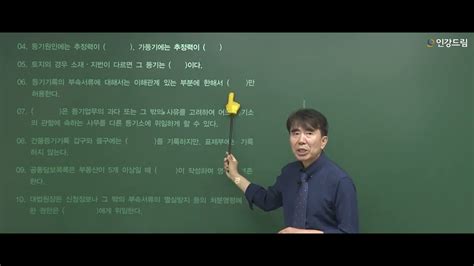 인강드림
04. 등기원인에는 추정력이 (        ), 가등기에는 추정력이 (     )
05. 토지의 경우 소재ㆍ지번이 다르면 그 등기는 (     )이다.
06. 등기기록의 부속서류에 대해서는 이해관계 있는 부분에 한해서 (      )만
허용한다.
07. (        )은 등기업무의 과다 또는 그 밖의 사유를 고려하여 어느 등기소
의 관할에 속하는 사무를 다른 등기소에 위임하게 할 수 있다.
08. 건물등기기록 갑구와 을구에는 (        )를 기록하지만, 표제부에는 기록
하지 않는다.
09. 공동담보목록은 부동산이 5개 이상일 때 (      )이 작성하여
10. 대법원장은 신청정보나 그 밖의 부속서류의 멸실방지 등의 처분명령에
한 권한은 (        )에게 위임한다.